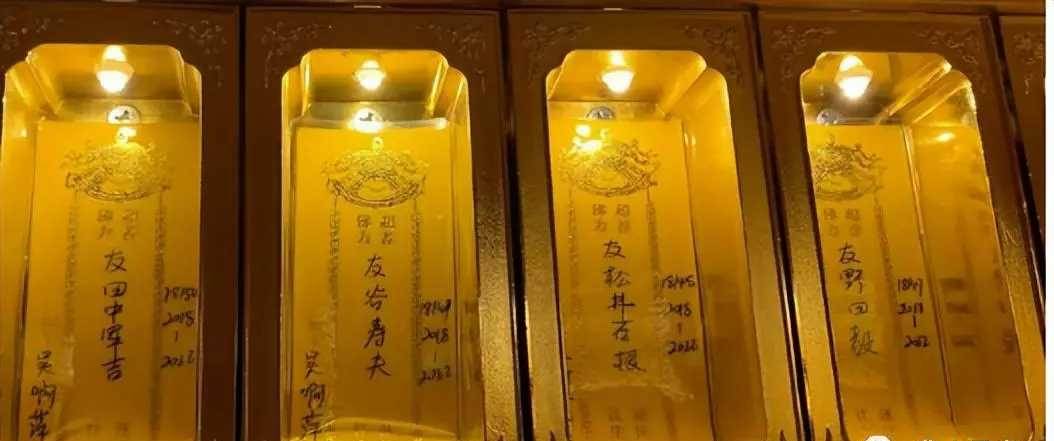 超荐
佛力
友田中军吉
2018-2022
吴啊萍
超荐
佛力
友谷寿夫
2018-2022
吴啊萍
超荐
佛力
友松井石根
18145
2018-2022
超荐
佛力
友野田毅